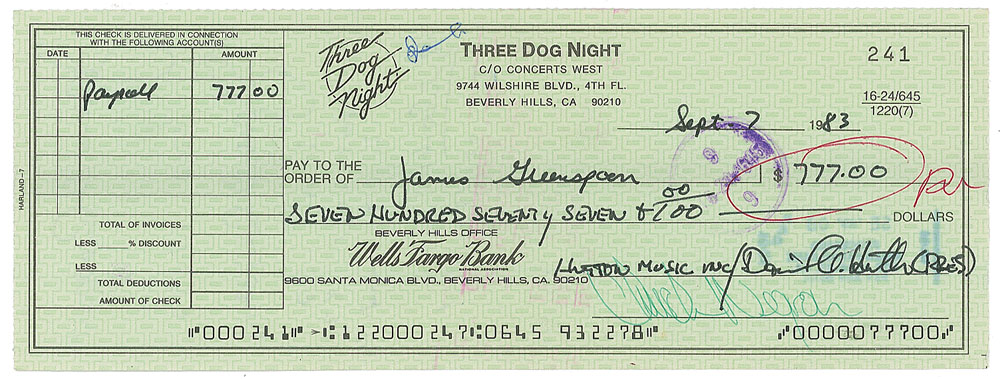 THIS CHECK IS DELIVERED IN CONNECTION
WITH THE FOLLOWING ACCOUNT(S)
DATE AMOUNT
Payroll 777 00
TOTAL OF INVOICES
LESS % DISCOUNT
LESS
TOTAL DEDUCTIONS
AMOUNT OF CHECK
HARLAND-7
Three
Dog
Night
THREE DOG NIGHT
C/O CONCERTS WEST
9744 WILSHIRE BLVD., 4TH FL.
BEVERLY HILLS, CA 90210
241
16-24/645
1220(7)
Sept. 7 1983
PAY TO THE
ORDER OF James Greenspoon $ 777.00
SEVEN HUNDRED SEVENTY SEVEN & 00/100 DOLLARS
BEVERLY HILLS OFFICE
Wells Fargo Bank
NATIONAL ASSOCIATION
9600 SANTA MONICA BLVD., BEVERLY HILLS, CA. 90210
HUTTON MUSIC INC/ (PRES)
⑈000241⑈ ⑆122000247⑆0645 932278⑈ ⑈0000077700⑈